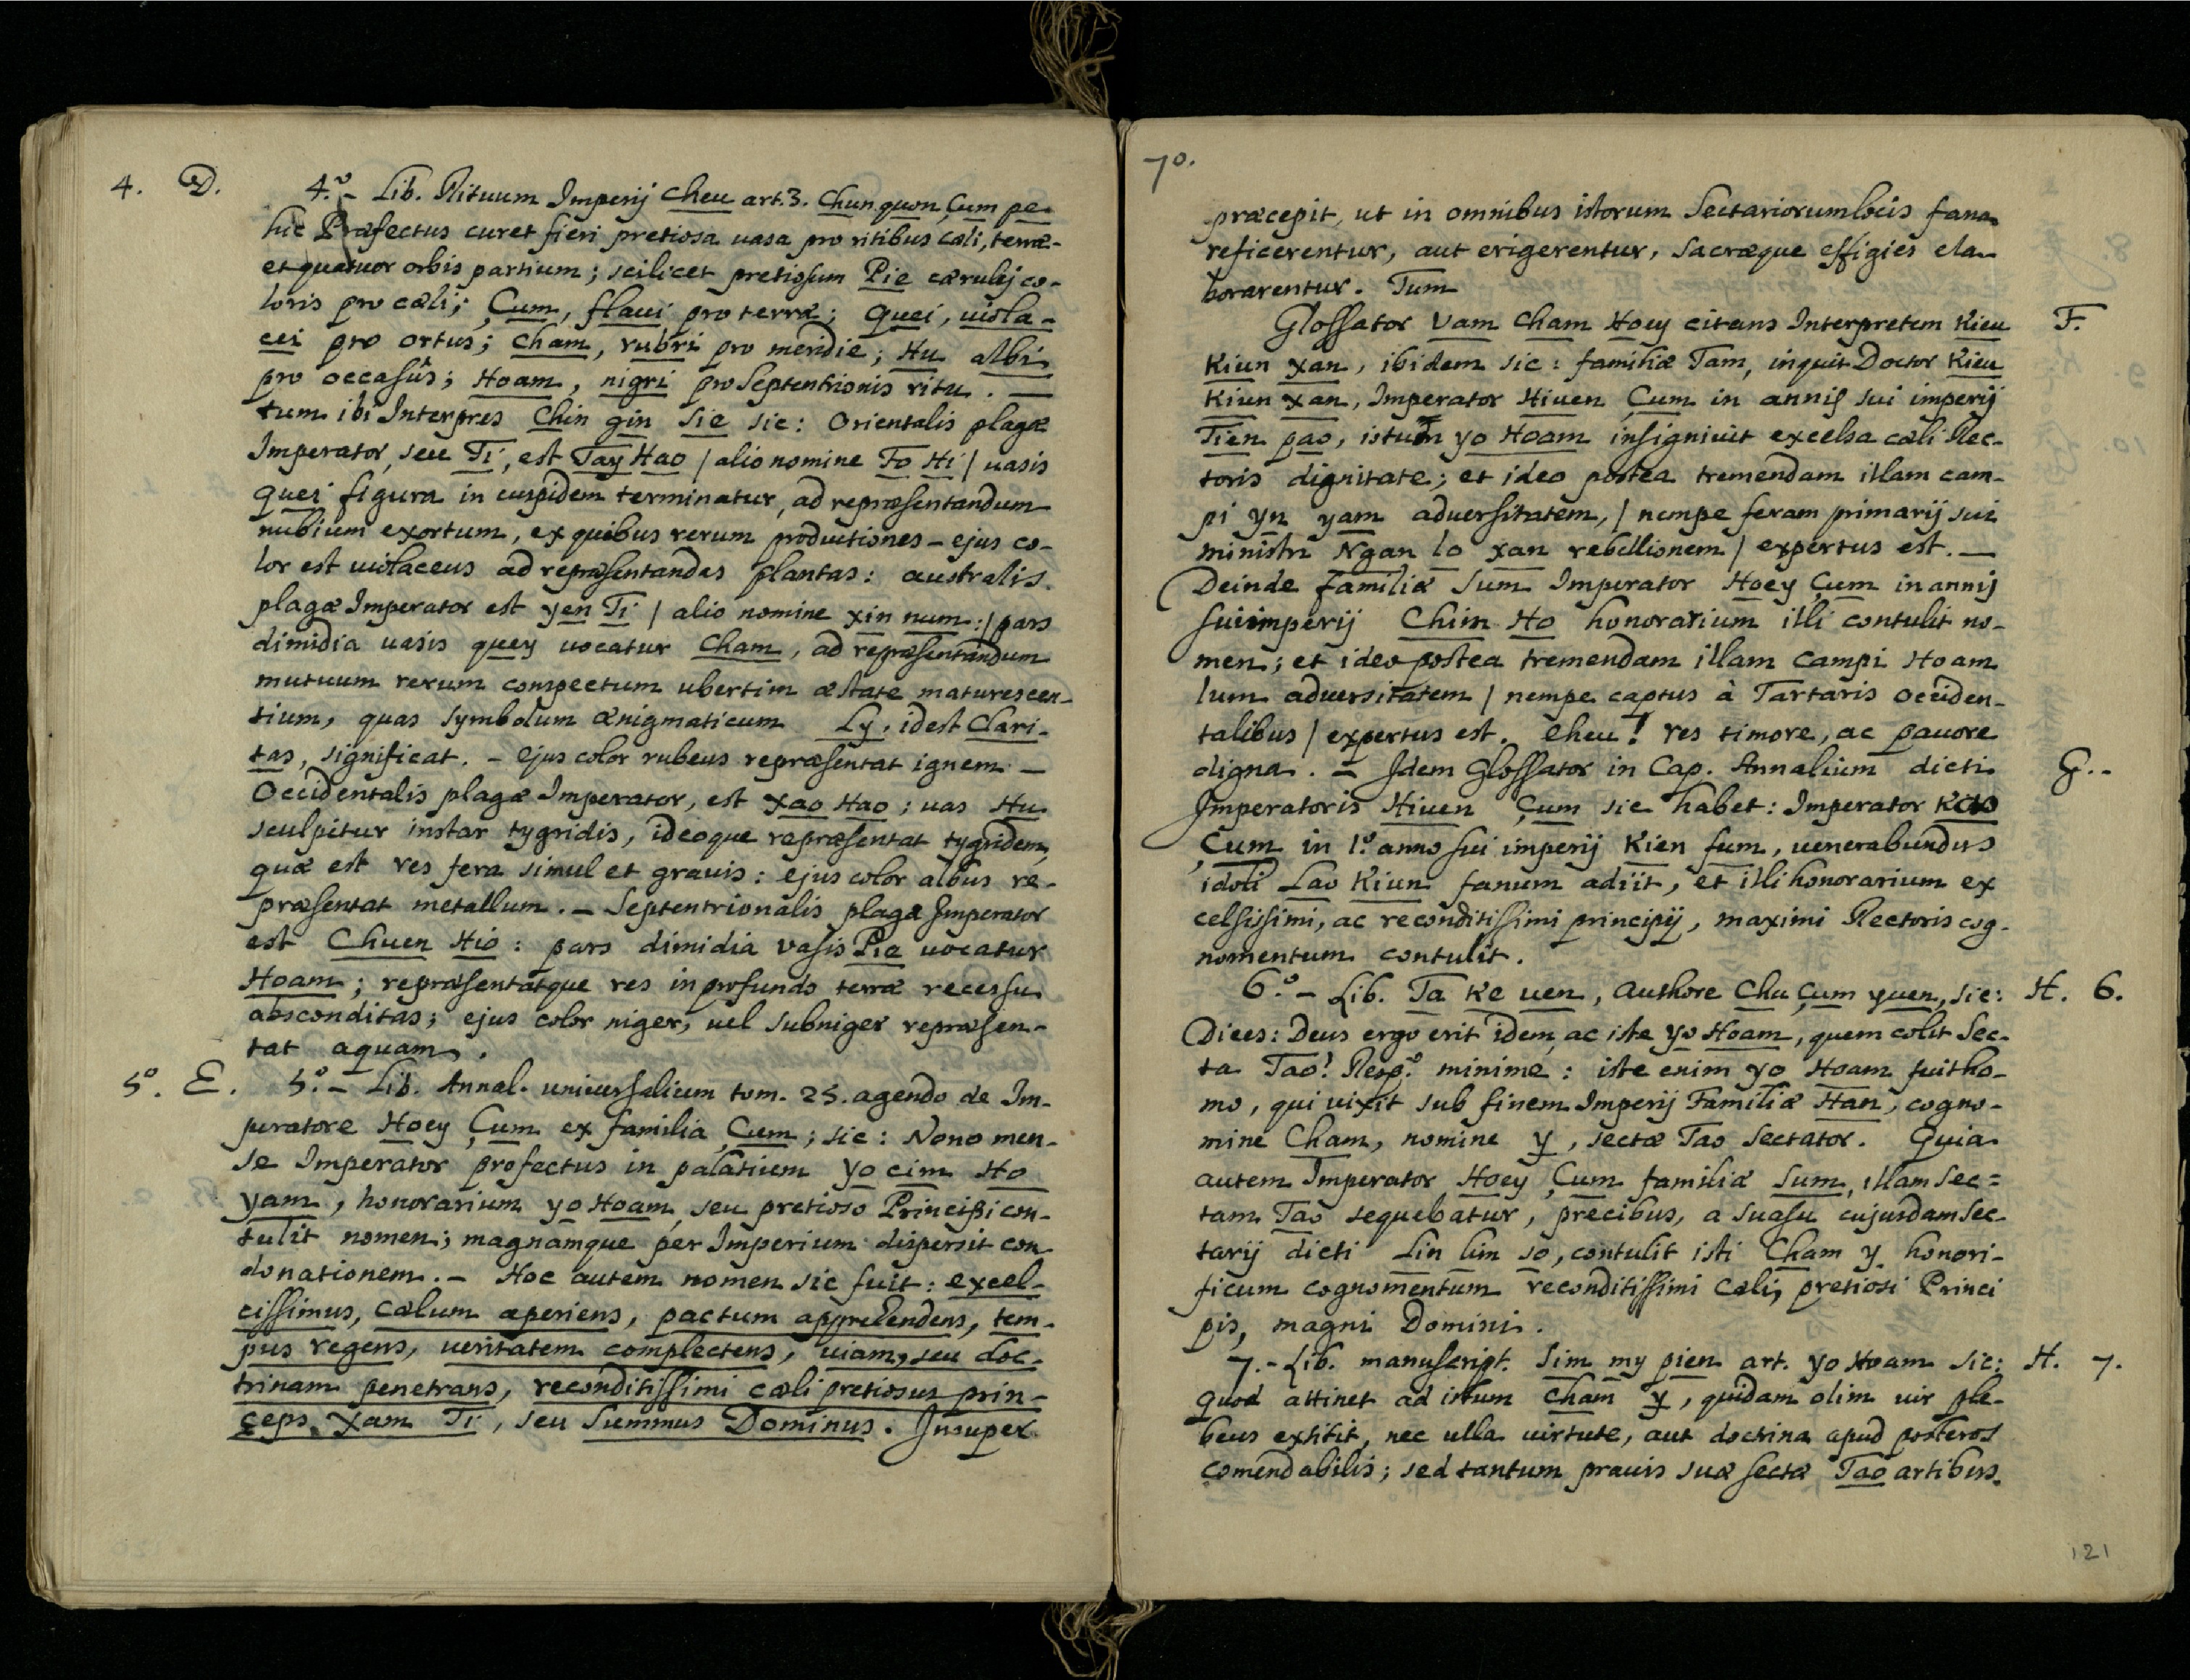 4. D. 4.º - Lib. Rituum Imperij Cheu art. 3. Chun quon Çum pe
hic Præfectus curet fieri pretiosa uasa pro ritibus cæli, terræ-
et quatuor orbis partium; scilicet pretiosum Pie cærulej co-
loris pro cæli; Çum, flaui pro terræ; Quei, uiola-
cei pro ortus; Cham, rubri pro meridie; Hu albi
pro occasûs; Hoam, nigri pro Septentrionis ritu. —
tum ibi Interpres Chin gin Sie sic: Orientalis plagæ
Imperator, seu Ti, est Tay Hao / alio nomine Fo Hi / uasis
Quei figura in cuspidem terminatur, ad repræsentandum
nubium exortum, ex quibus rerum productiones - ejus co-
lor est uiolaceus ad repræsentandas plantas: australis
plagæ Imperator est yen Ti / alio nomine xin num: / pars
dimidia uasis quey uocatur Cham, ad repræsentandum
mutuum rerum conspectum ubertim æstate maturescen-
tium, quas symbolum ænigmaticum Ly, idest Clari-
tas, significat. - Ejus color rubeus repræsentat ignem —
Occidentalis plagæ Imperator, est Xao Hao; uas Hu
sculpitur instar tygridis, ideoque repræsentat tygridem,
quæ est res fera simul et grauis: ejus color albus re-
præsentat metallum. - Septentrionalis plagæ Imperator
est Chuen Hio: pars dimidia vasis Pie uocatur
Hoam; repræsentatque res in profundo terræ recessu
absconditas; ejus color niger, uel subniger repræsen-
tat aquam.
5º. E. 5.º - Lib. Annal. uniuersalium tom. 25. agendo de Im-
peratore Hoey Çum ex familia Çum; sic: Nono men-
se Imperator profectus in palatium yo cim Ho
yam, honorarium yo Hoam, seu pretioso Principi con-
tulit nomen; magnamque per Imperium dispersit con-
donationem. - Hoc autem nomen sic fuit: excel-
cissimus, cælum aperiens, pactum apprehendens, tem-
pus regens, ueritatem complectens, uiam, seu doc-
trinam penetrans, reconditissimi cæli pretiosus prin-
ceps Xam Ti, seu Summus Dominus. Insuper
70.
præcepit, ut in omnibus istorum Sectariorum locis fana
reficerentur, aut erigerentur, sacræque effigies ela-
borarentur. Tum
Glossator Vam Cham Hoey citans Interpretem Kieu F.
Kiun xan, ibidem sic: familiæ Tam, inquit Doctor Kieu
Kiun xan, Imperator Hiuen Çum in annis sui imperij
Tien pao, istum yo Hoam insigniuit excelsa cæli Rec-
toris dignitate; et ideo postea tremendam illam cam-
pi yn yam aduersitatem, / nempe feram primarij sui
ministri Ngan lo xan rebellionem / expertus est. —
Deinde familiæ Sum Imperator Hoey Çum in annis
sui imperij Chim Ho honorarium illi contulit no-
men; et ideo postea tremendam illam campi Hoam
lum aduersitatem / nempe captus à Tartaris occiden-
talibus / expertus est. eheu! res timore, ac pauore
digna. - Idem Glossator in Cap. Annalium dicti G..
Imperatoris Hiuen Çum sic habet: Imperator Kao
Çum in 1.º anno sui imperij Kien fum, uenerabundus
idoli Lao Kiun fanum adiit, et illi honorarium ex
celsissimi, ac reconditissimi principij, maximi Rectoris cog-
nomentum contulit.
6.º - Lib. Ta Ke uen, Authore Chu Çum yuen, sic: H. 6.
Dices: Deus ergo erit idem, ac iste yo Hoam, quem colit Sec-
ta Tao? Resp.º minime: iste enim yo Hoam fuit ho-
mo, qui uixit sub finem Imperij Familiæ Han, cogno-
mine Cham, nomine y, sectæ Tao sectator. Quia
autem Imperator Hoey Çum familiæ Sum, illam sec=
tam Tao sequebatur, precibus, a suasu cujusdam sec-
tarij dicti Lin lim so, contulit isti Cham y honori-
ficum cognomentum reconditissimi Cæli, pretiosi Princi
pis, magni Domini.
7. - Lib. manuscript. Sim my pien art. yo Hoam sic: H. 7.
Quod attinet ad istum Cham y, quidam olim uir ple-
beus extitit, nec ulla uirtute, aut doctrina apud posteros
comendabilis; sed tantum prauis suæ sectæ Tao artibus.
121